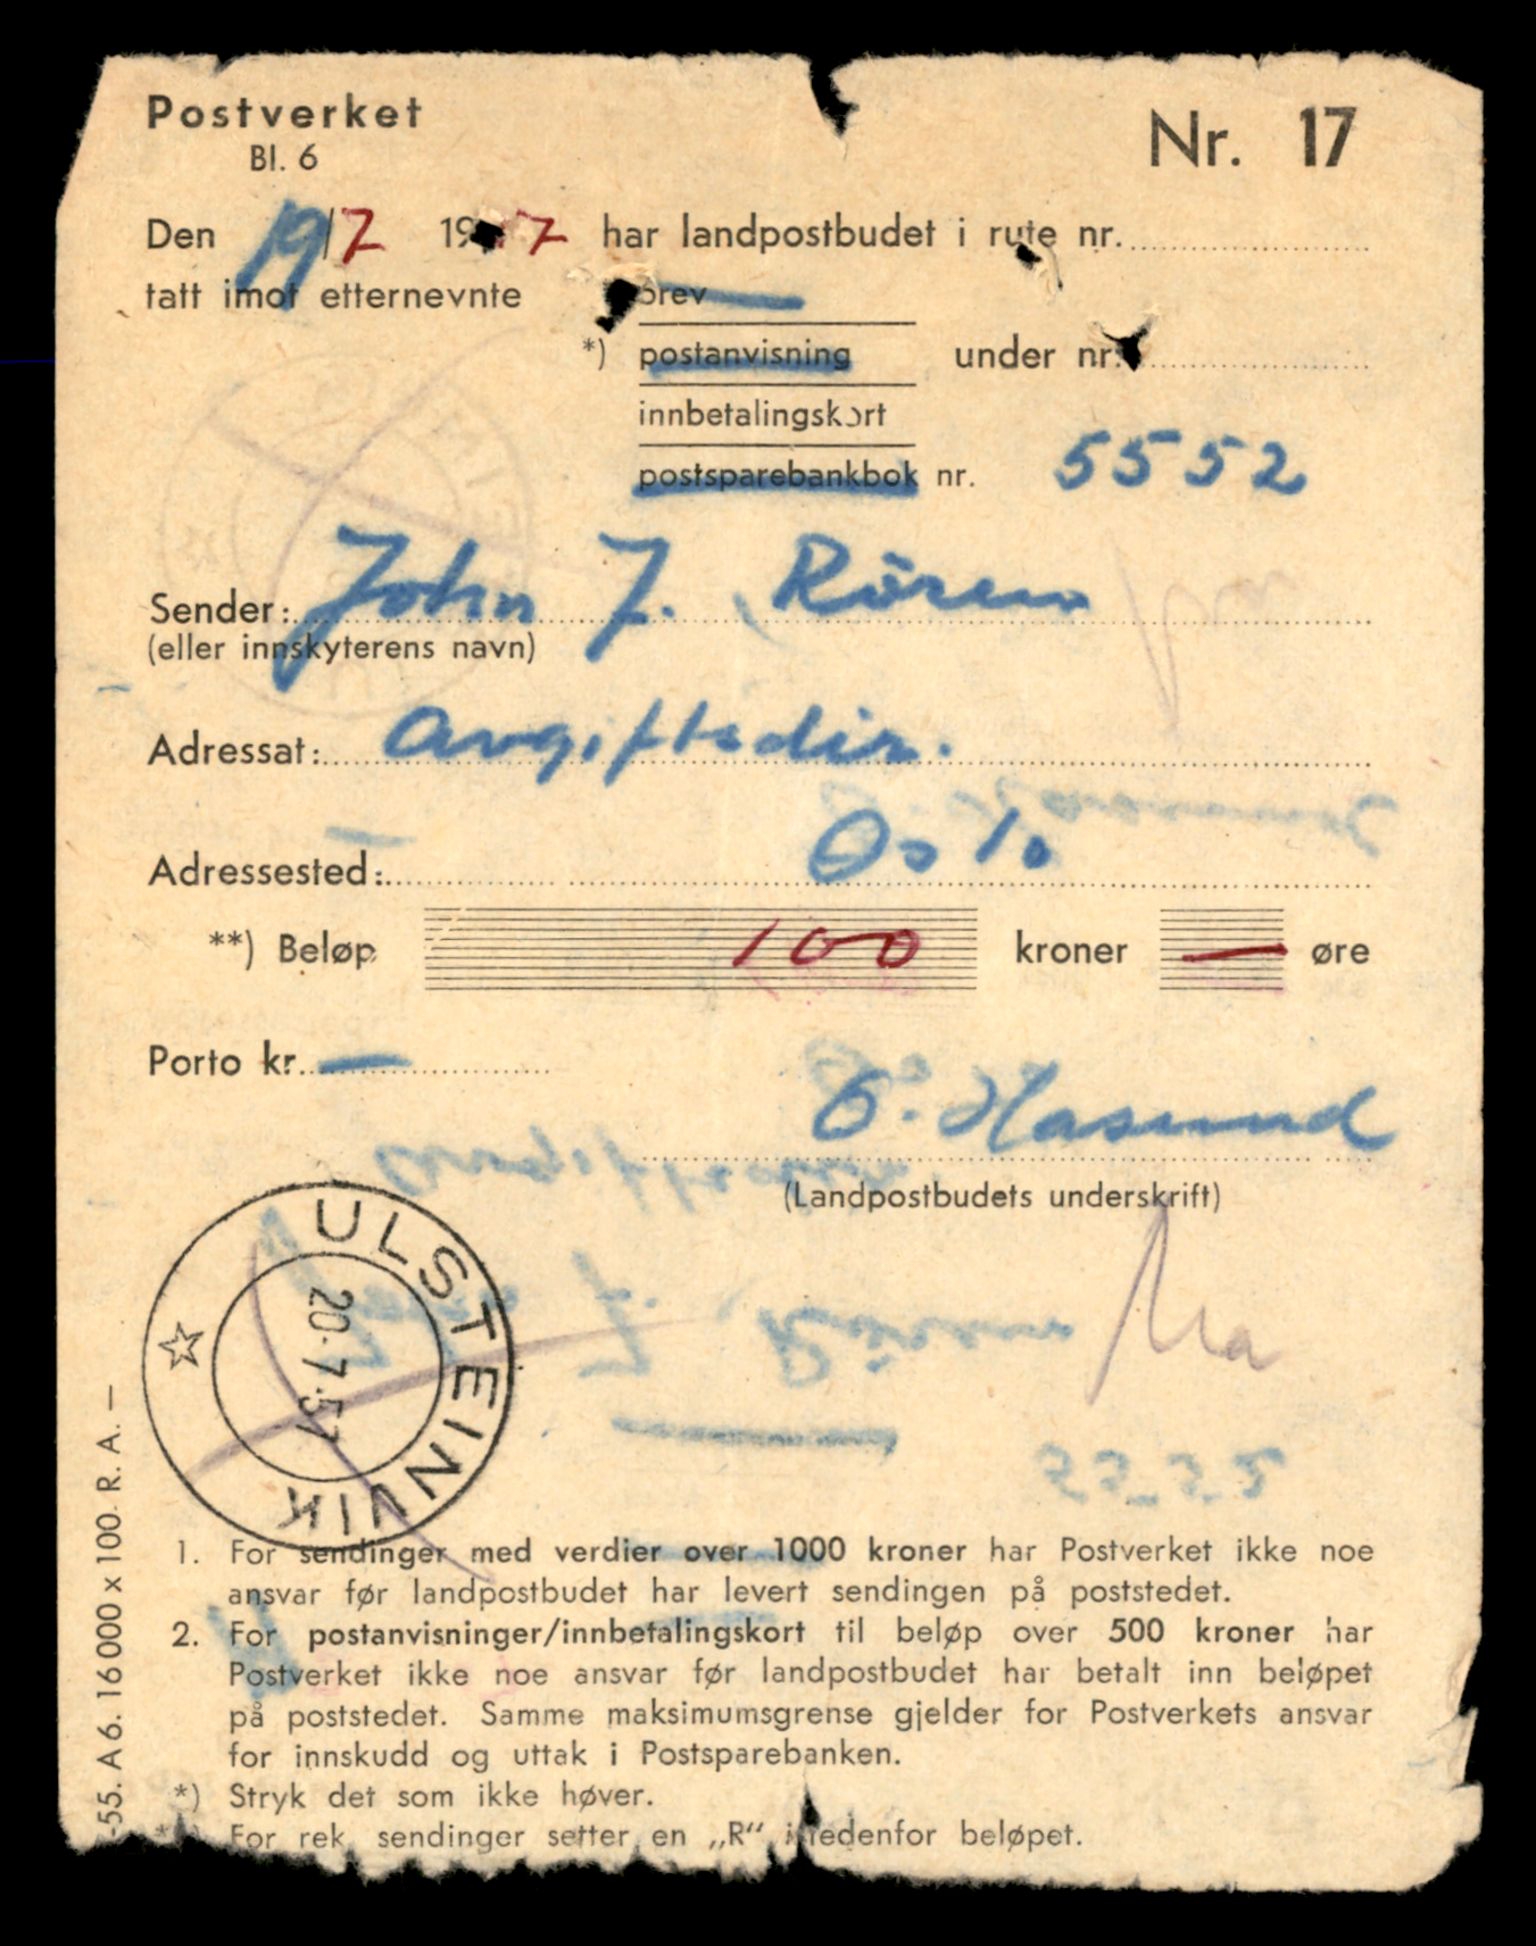 Postverket
Nr. 17
Bl. 6
Den 19/7 19 7 har landpostbudet i rute nr.
tatt imot etternevnte brev
*) postanvisning under nr.
innbetalingskort
postsparebankbok nr. 5552
Sender: John J. Røren
(eller innskyterens navn)
Adressat: Avgiftsdir.
Adressested: Oslo
**) Beløp 100 kroner — øre
Porto kr. —
O. Hasund
(Landpostbudets underskrift)
ULSTEINVIK
20.7.57
1. For sendinger med verdier over 1000 kroner har Postverket ikke noe
ansvar før landpostbudet har levert sendingen på poststedet.
2. For postanvisninger/innbetalingskort til beløp over 500 kroner har
Postverket ikke noe ansvar før landpostbudet har betalt inn beløpet
på poststedet. Samme maksimumsgrense gjelder for Postverkets ansvar
for innskudd og uttak i Postsparebanken.
*) Stryk det som ikke høver.
**) For rek. sendinger setter en „R“ i nedenfor beløpet.
-55. A 6. 16 000 x 100. R. A. —